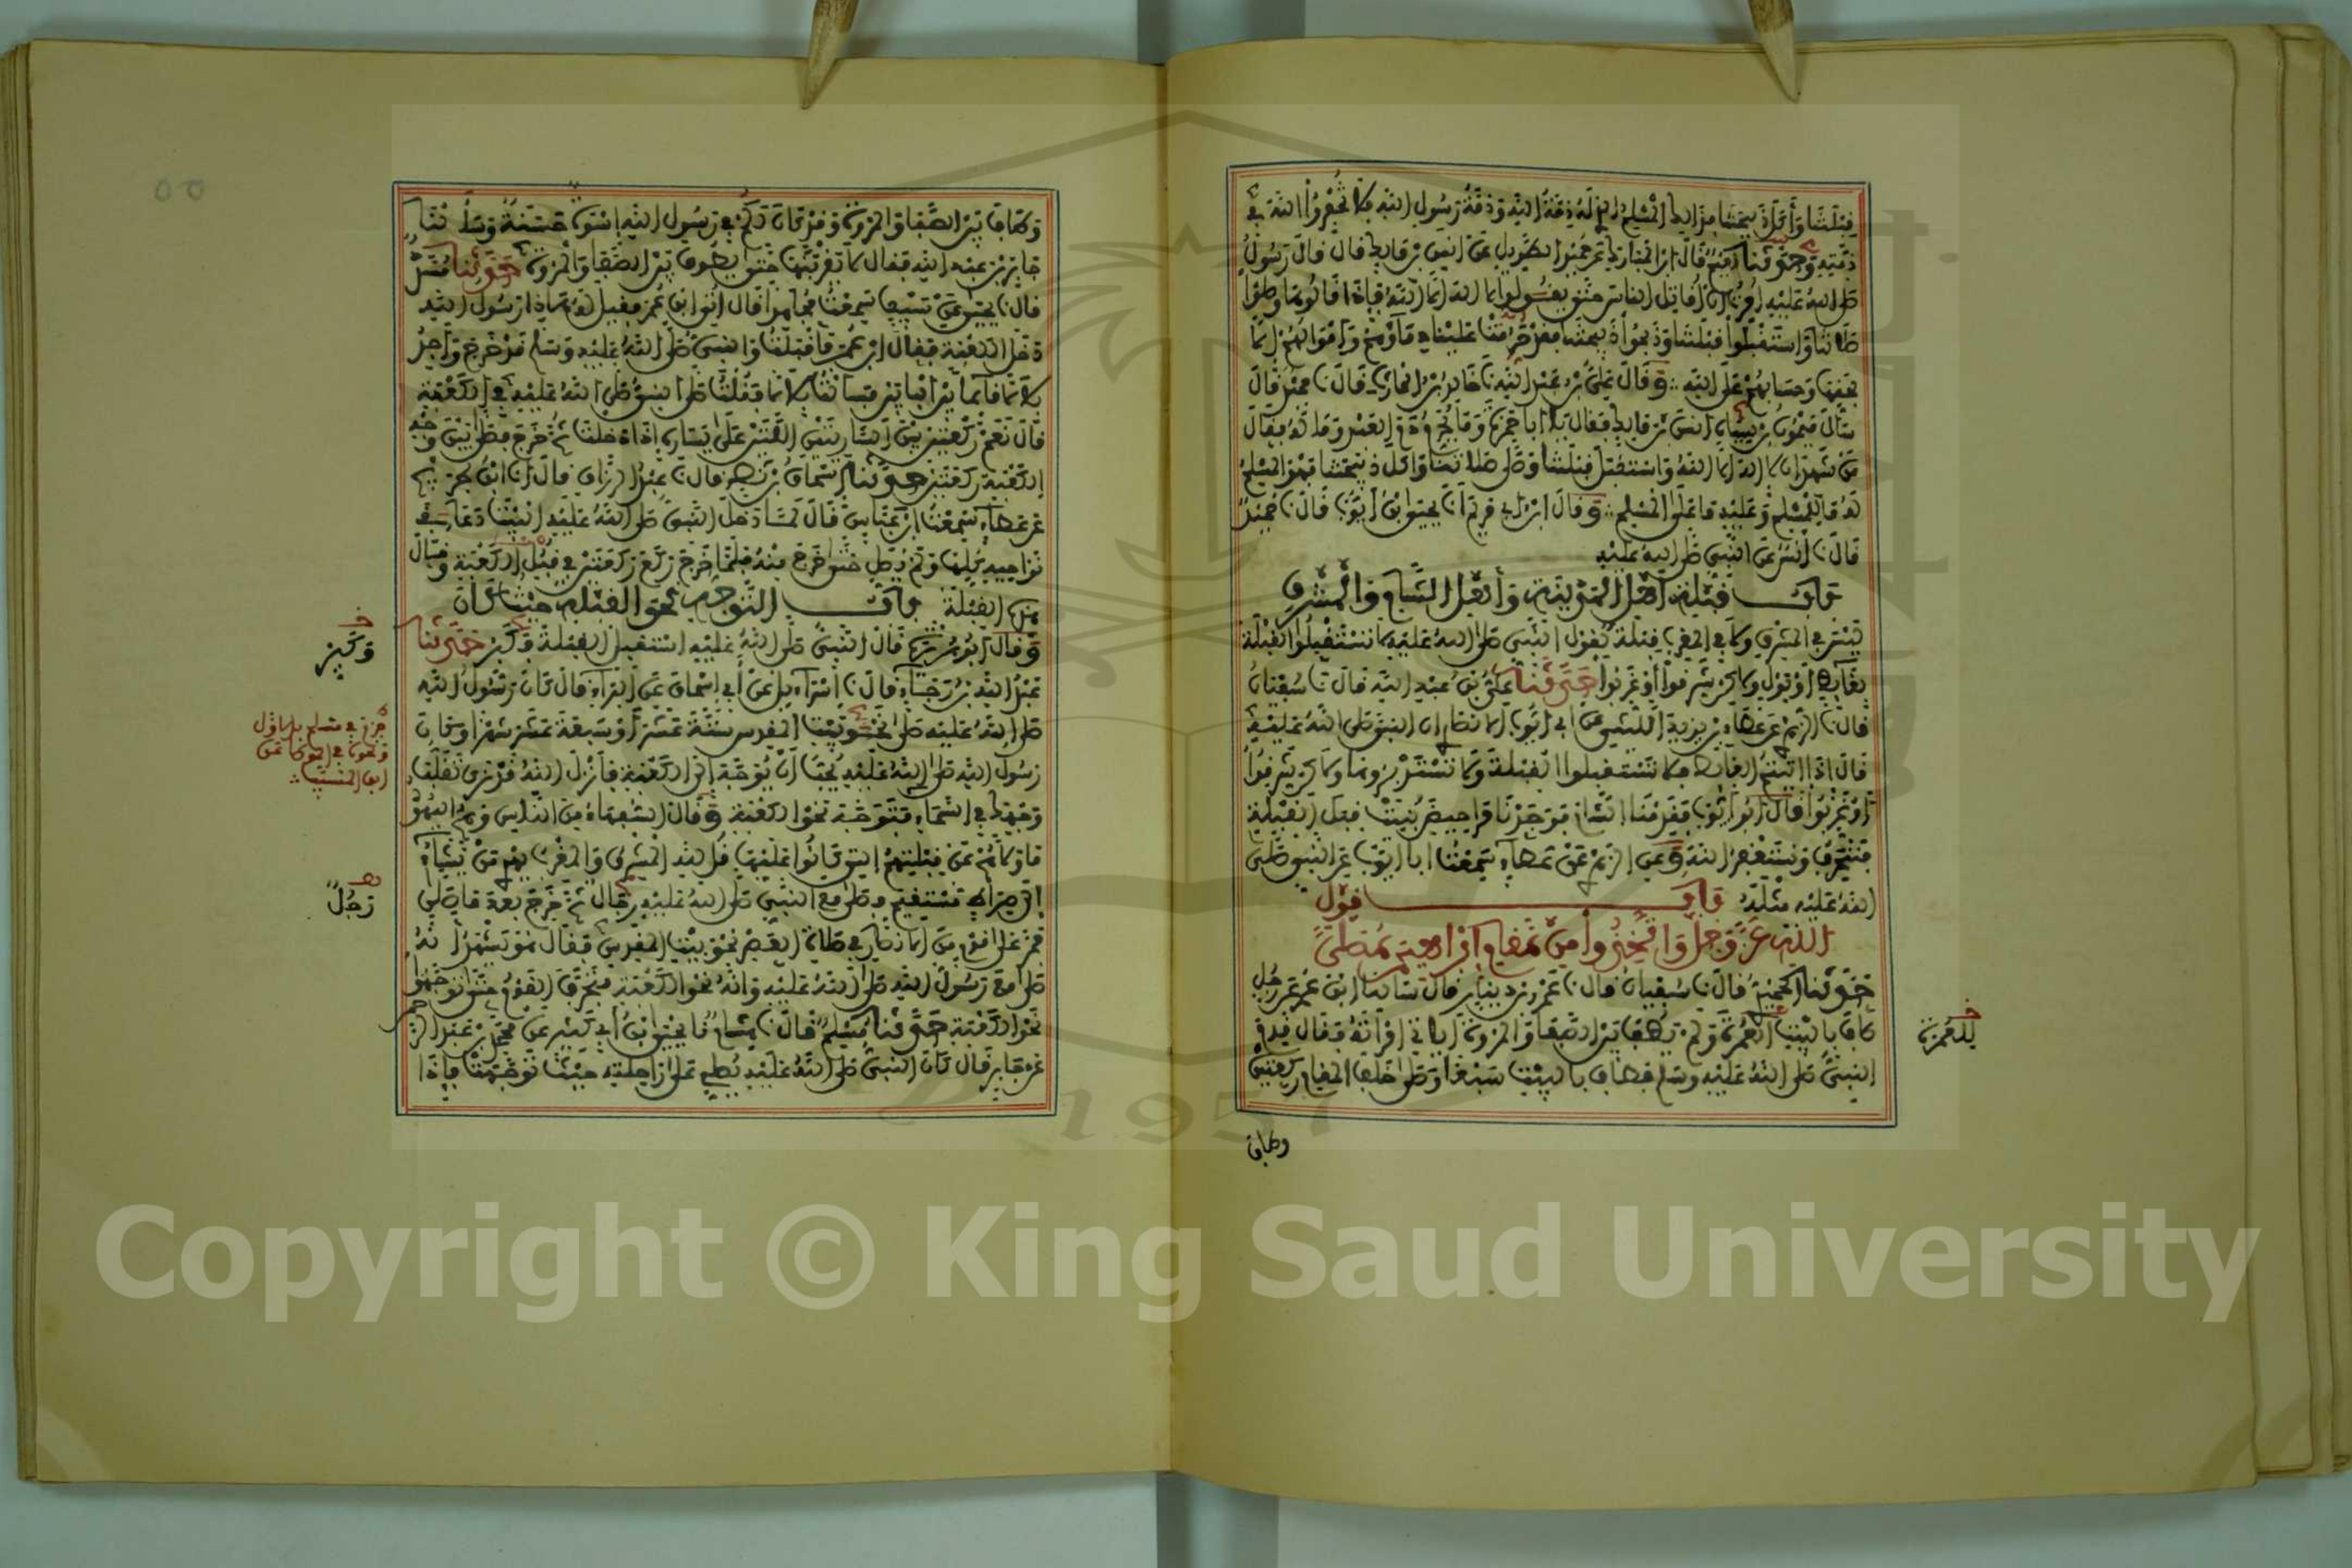 قِبْلَتَنَا وَأَكَلَ ذَبِيحَتَنَا فَذَالِكَ الْمُسْلِمُ الَّذِي لَهُ ذِمَّةُ اللَّهِ وَذِمَّةُ رَسُولِ اللَّهِ فَلَا تُخْفِرُوا اللَّهَ فِي
ذِمَّتِهِ حَدَّثَنَا نُعَيْمٌ قَالَ ابْنُ الْمُبَارَكِ عَنْ حُمَيْدٍ الطَّوِيلِ عَنْ أَنَسِ بْنِ مَالِكٍ قَالَ قَالَ رَسُولُ
صَلَّى اللَّهُ عَلَيْهِ أُمِرْتُ أَنْ أُقَاتِلَ النَّاسَ حَتَّى يَقُولُوا لَا إِلَهَ إِلَّا اللَّهُ فَإِذَا قَالُوهَا وَصَلَّوْا
صَلَاتَنَا وَاسْتَقْبَلُوا قِبْلَتَنَا وَذَبَحُوا ذَبِيحَتَنَا فَقَدْ حَرُمَتْ عَلَيْنَا دِمَاؤُهُمْ وَأَمْوَالُهُمْ إِلَّا
بِحَقِّهَا وَحِسَابُهُمْ عَلَى اللَّهِ وَقَالَ عَلِيُّ بْنُ عَبْدِ اللَّهِ نَا خَالِدُ بْنُ الْحَارِثِ قَالَ نَا حُمَيْدٌ قَالَ
سَأَلَ مَيْمُونُ بْنُ سِيَاهٍ أَنَسَ بْنَ مَالِكٍ فَقَالَ يَا أَبَا حَمْزَةَ وَمَا يُحَرِّمُ دَمَ الْعَبْدِ وَمَالَهُ فَقَالَ
مَنْ شَهِدَ أَنْ لَا إِلَهَ إِلَّا اللَّهُ وَاسْتَقْبَلَ قِبْلَتَنَا وَصَلَّى صَلَاتَنَا وَأَكَلَ ذَبِيحَتَنَا فَهُوَ الْمُسْلِمُ
لَهُ مَا لِلْمُسْلِمِ وَعَلَيْهِ مَا عَلَى الْمُسْلِمِ وَقَالَ ابْنُ أَبِي مَرْيَمَ أَنَا يَحْيَى بْنُ أَيُّوبَ قَالَ نَا حُمَيْدٌ
قَالَ نَا أَنَسٌ عَنِ النَّبِيِّ صَلَّى اللَّهُ عَلَيْهِ
بَابُ قِبْلَةِ أَهْلِ الْمَدِينَةِ وَأَهْلِ الشَّامِ وَالْمَشْرِقِ
لَيْسَ فِي الْمَشْرِقِ وَلَا فِي الْمَغْرِبِ قِبْلَةٌ لِقَوْلِ النَّبِيِّ صَلَّى اللَّهُ عَلَيْهِ لَا تَسْتَقْبِلُوا الْقِبْلَةَ
بِغَائِطٍ أَوْ بَوْلٍ وَلَكِنْ شَرِّقُوا أَوْ غَرِّبُوا حَدَّثَنَا عَلِيُّ بْنُ عَبْدِ اللَّهِ قَالَ نَا سُفْيَانُ
قَالَ نَا الزُّهْرِيُّ عَنْ عَطَاءِ بْنِ يَزِيدَ اللَّيْثِيِّ عَنْ أَبِي أَيُّوبَ الْأَنْصَارِيِّ أَنَّ النَّبِيَّ صَلَّى اللَّهُ عَلَيْهِ
قَالَ إِذَا أَتَيْتُمُ الْغَائِطَ فَلَا تَسْتَقْبِلُوا الْقِبْلَةَ وَلَا تَسْتَدْبِرُوهَا وَلَكِنْ شَرِّقُوا
أَوْ غَرِّبُوا قَالَ أَبُو أَيُّوبَ فَقَدِمْنَا الشَّامَ فَوَجَدْنَا مَرَاحِيضَ بُنِيَتْ قِبَلَ الْقِبْلَةِ
فَنَنْحَرِفُ وَنَسْتَغْفِرُ اللَّهَ وَعَنِ الزُّهْرِيِّ عَنْ عَطَاءٍ سَمِعْتُ أَبَا أَيُّوبَ عَنِ النَّبِيِّ صَلَّى
اللَّهُ عَلَيْهِ مِثْلَهُ بَابُ قَوْلِ
اللَّهِ عَزَّ وَجَلَّ وَاتَّخِذُوا مِنْ مَقَامِ إِبْرَاهِيمَ مُصَلًّى
حَدَّثَنَا الْحُمَيْدِيُّ قَالَ نَا سُفْيَانُ قَالَ نَا عَمْرُو بْنُ دِينَارٍ قَالَ سَأَلْنَا ابْنَ عُمَرَ عَنْ رَجُلٍ
طَافَ بِالْبَيْتِ الْعُمْرَةَ وَلَمْ يَطُفْ بَيْنَ الصَّفَا وَالْمَرْوَةِ أَيَأْتِي امْرَأَتَهُ فَقَالَ قَدِمَ
النَّبِيُّ صَلَّى اللَّهُ عَلَيْهِ وَسَلَّمَ فَطَافَ بِالْبَيْتِ سَبْعًا وَصَلَّى خَلْفَ الْمَقَامِ رَكْعَتَيْنِ
لِلْعُمْرَةِ
وطاف
وَطَافَ بَيْنَ الصَّفَا وَالْمَرْوَةِ وَقَدْ كَانَ لَكُمْ فِي رَسُولِ اللَّهِ إِسْوَةٌ حَسَنَةٌ وَسَأَلْنَا
جَابِرَ بْنَ عَبْدِ اللَّهِ فَقَالَ لَا يَقْرَبَنَّهَا حَتَّى يَطُوفَ بَيْنَ الصَّفَا وَالْمَرْوَةِ حَدَّثَنَا مُسَدَّدٌ
قَالَ نَا يَحْيَى عَنْ سَيْفٍ سَمِعْتُ مُجَاهِدًا قَالَ أُتِيَ ابْنُ عُمَرَ فَقِيلَ لَهُ هَذَا رَسُولُ اللَّهِ
دَخَلَ الْكَعْبَةَ فَقَالَ ابْنُ عُمَرَ فَأَقْبَلْتُ وَالنَّبِيُّ صَلَّى اللَّهُ عَلَيْهِ وَسَلَّمَ قَدْ خَرَجَ وَأَجِدُ
بِلَالًا قَائِمًا بَيْنَ الْبَابَيْنِ فَسَأَلْتُ بِلَالًا فَقُلْتُ صَلَّى النَّبِيُّ صَلَّى اللَّهُ عَلَيْهِ فِي الْكَعْبَةِ
قَالَ نَعَمْ رَكْعَتَيْنِ بَيْنَ السَّارِيَتَيْنِ اللَّتَيْنِ عَلَى يَسَارِهِ إِذَا دَخَلْتَ ثُمَّ خَرَجَ فَصَلَّى فِي وَجْهِ
الْكَعْبَةِ رَكْعَتَيْنِ حَدَّثَنَا إِسْحَاقُ بْنُ نَصْرٍ قَالَ نَا عَبْدُ الرَّزَّاقِ قَالَ أَنَا ابْنُ جُرَيْجٍ
عَنْ عَطَاءٍ سَمِعْتُ ابْنَ عَبَّاسٍ قَالَ لَمَّا دَخَلَ النَّبِيُّ صَلَّى اللَّهُ عَلَيْهِ الْبَيْتَ دَعَا فِي
نَوَاحِيهِ كُلِّهَا وَلَمْ يُصَلِّ حَتَّى خَرَجَ مِنْهُ فَلَمَّا خَرَجَ رَكَعَ رَكْعَتَيْنِ فِي قُبُلِ الْكَعْبَةِ وَقَالَ
هَذِهِ الْقِبْلَةُ بَابُ التَّوَجُّهِ نَحْوَ الْقِبْلَةِ حَيْثُ كَانَ
وَقَالَ أَبُو هُرَيْرَةَ قَالَ النَّبِيُّ صَلَّى اللَّهُ عَلَيْهِ اسْتَقْبِلِ الْقِبْلَةَ وَكَبِّرْ حَدَّثَنَا
عَبْدُ اللَّهِ بْنُ رَجَاءٍ قَالَ نَا إِسْرَائِيلُ عَنْ أَبِي إِسْحَاقَ عَنِ الْبَرَاءِ قَالَ كَانَ رَسُولُ اللَّهِ
صَلَّى اللَّهُ عَلَيْهِ صَلَّى نَحْوَ بَيْتِ الْمَقْدِسِ سِتَّةَ عَشَرَ أَوْ سَبْعَةَ عَشَرَ شَهْرًا وَكَانَ
رَسُولُ اللَّهِ صَلَّى اللَّهُ عَلَيْهِ يُحِبُّ أَنْ يُوَجَّهَ إِلَى الْكَعْبَةِ فَأَنْزَلَ اللَّهُ قَدْ نَرَى تَقَلُّبَ
وَجْهِكَ فِي السَّمَاءِ فَتَوَجَّهَ نَحْوَ الْكَعْبَةِ وَقَالَ السُّفَهَاءُ مِنَ النَّاسِ وَهُمُ الْيَهُودُ
مَا وَلَّاهُمْ عَنْ قِبْلَتِهِمُ الَّتِي كَانُوا عَلَيْهَا قُلْ لِلَّهِ الْمَشْرِقُ وَالْمَغْرِبُ يَهْدِي مَنْ يَشَاءُ
إِلَى صِرَاطٍ مُسْتَقِيمٍ فَصَلَّى مَعَ النَّبِيِّ صَلَّى اللَّهُ عَلَيْهِ رِجَالٌ ثُمَّ خَرَجَ بَعْدَ مَا صَلَّى
فَمَرَّ عَلَى قَوْمٍ مِنَ الْأَنْصَارِ فِي صَلَاةِ الْعَصْرِ نَحْوَ بَيْتِ الْمَقْدِسِ فَقَالَ هُوَ يَشْهَدُ أَنَّهُ
صَلَّى مَعَ رَسُولِ اللَّهِ صَلَّى اللَّهُ عَلَيْهِ وَأَنَّهُ نَحْوَ الْكَعْبَةِ فَتَحَرَّفَ الْقَوْمُ حَتَّى تَوَجَّهُوا
نَحْوَ الْكَعْبَةِ حَدَّثَنَا مُسْلِمٌ قَالَ نَا هِشَامٌ نَا يَحْيَى بْنُ أَبِي كَثِيرٍ عَنْ مُحَمَّدِ بْنِ عَبْدِ الرَّحْمَنِ
عَنْ جَابِرٍ قَالَ كَانَ النَّبِيُّ صَلَّى اللَّهُ عَلَيْهِ يُصَلِّي عَلَى رَاحِلَتِهِ حَيْثُ تَوَجَّهَتْ فَإِذَا
وَكَبِّرْ
رَجُلٌ
1957
Copyright © King Saud University